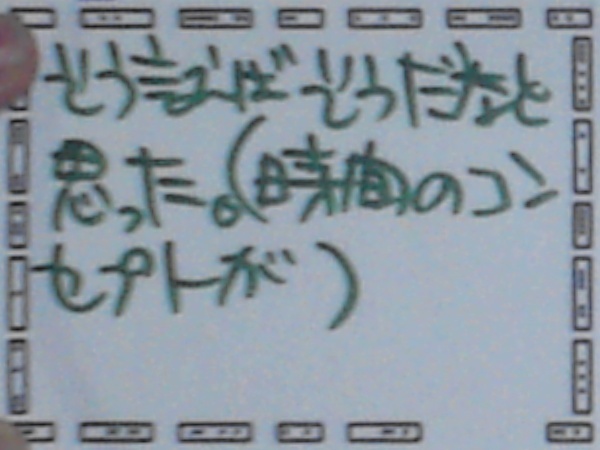 そう言えばそうだなと
思った。(時価のコン
セプトが)